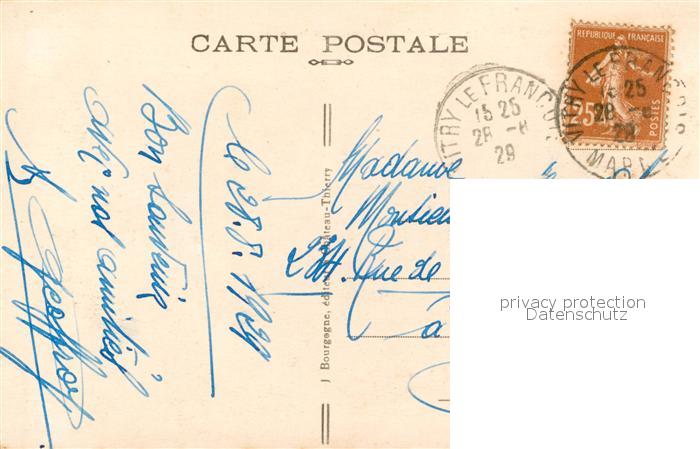 CARTE POSTALE
VITRY LE FRANÇOIS
15 25
28 - 8
29
REPUBLIQUE FRANÇAISE
25
POSTES
VITRY LE FRANÇOIS
15 25
28 - 8
29
MARNE
le 28.8.1929
Bon souvenir
nos amitiés
Geoffroy
J Bourgogne, éditeur, Château-Thierry
Madame
Rue de
à
privacy protection
Datenschutz